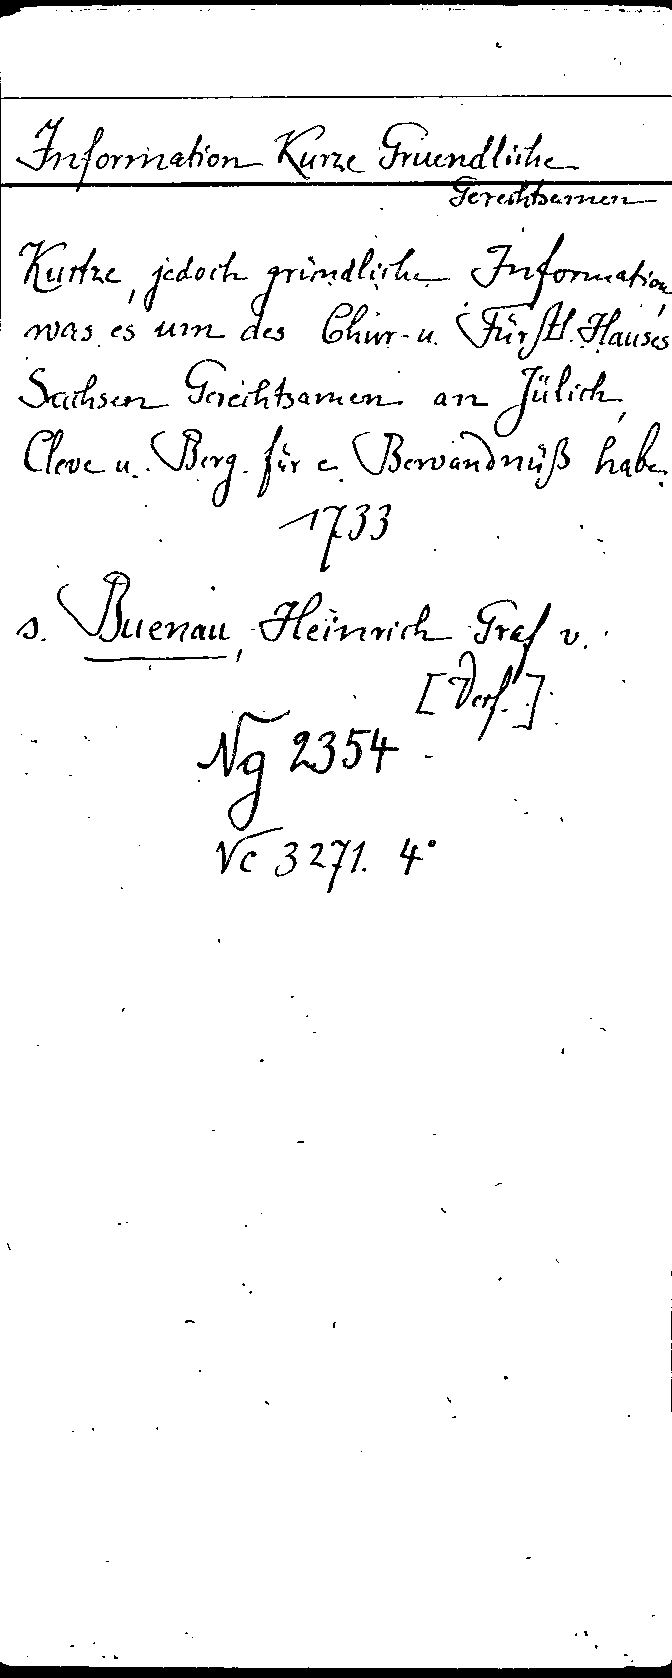 Information Kurze Gruendliche
Gerechtsamen
Kurtze, jedoch gründliche Information,
was es um des Chur- u. Fürstl. Hauses
Sachsen Gerechtsamen an Jülich,
Cleve u. Berg für e. Bewandnüß habe.
1733
s. Buenau, Heinrich Graf v.
[Verf.]
Ng 2354
Vc 3271. 4°